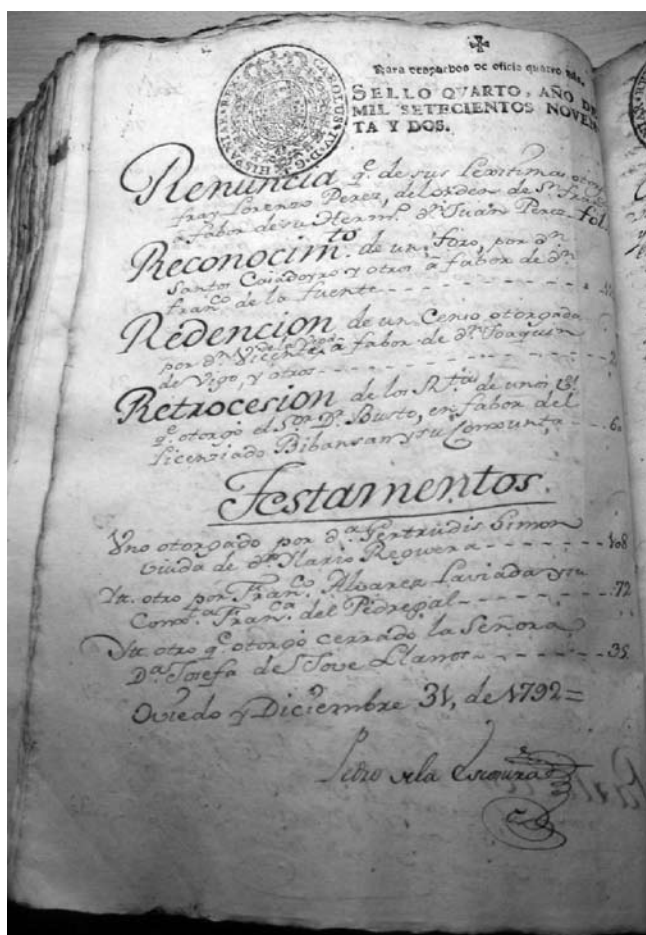 CAROLUS IV D G HISPANIAR REX
Para despachos de oficio quatro mrs.
SELLO QVARTO, AÑO DE
MIL SETECIENTOS NOVEN
TA Y DOS.
Renuncia q.e de sus Lexitimas otorgó
fray Lorenzo Perez, del orden de S.n Fran
a fabor de su Herm.o d.n Juan Perez - fol.
Reconocim.to de un foro, por d.n
Santos y otros à fabor de d.n
fran.co de la fuente
Redencion de un Censo otorgada
por d.n Vicente de la Vega, à fabor de d.n Joaquin
de Vigo, y otros
Retrocesion de los de unos
q.e otorgó el S.or D.n Busto, en fabor del
Licenziado y su Comounta - - 60
Testamentos.
Vno otorgado por d.a Gertrudis Simon
viuda de d.n Ilario Reguera - - - - - - 108
Yt. otro por Fran.co Alvarez Laviada y su
Com.ta Fran.ca del Pedregal - - - - - - 72
Ytt otro q.e otorgó cerrado la Señora
D.a Josefa de Jove Llanos - - - - - - 35
Oviedo y Diciembre 31, de 1792=
Pedro de la Escosura